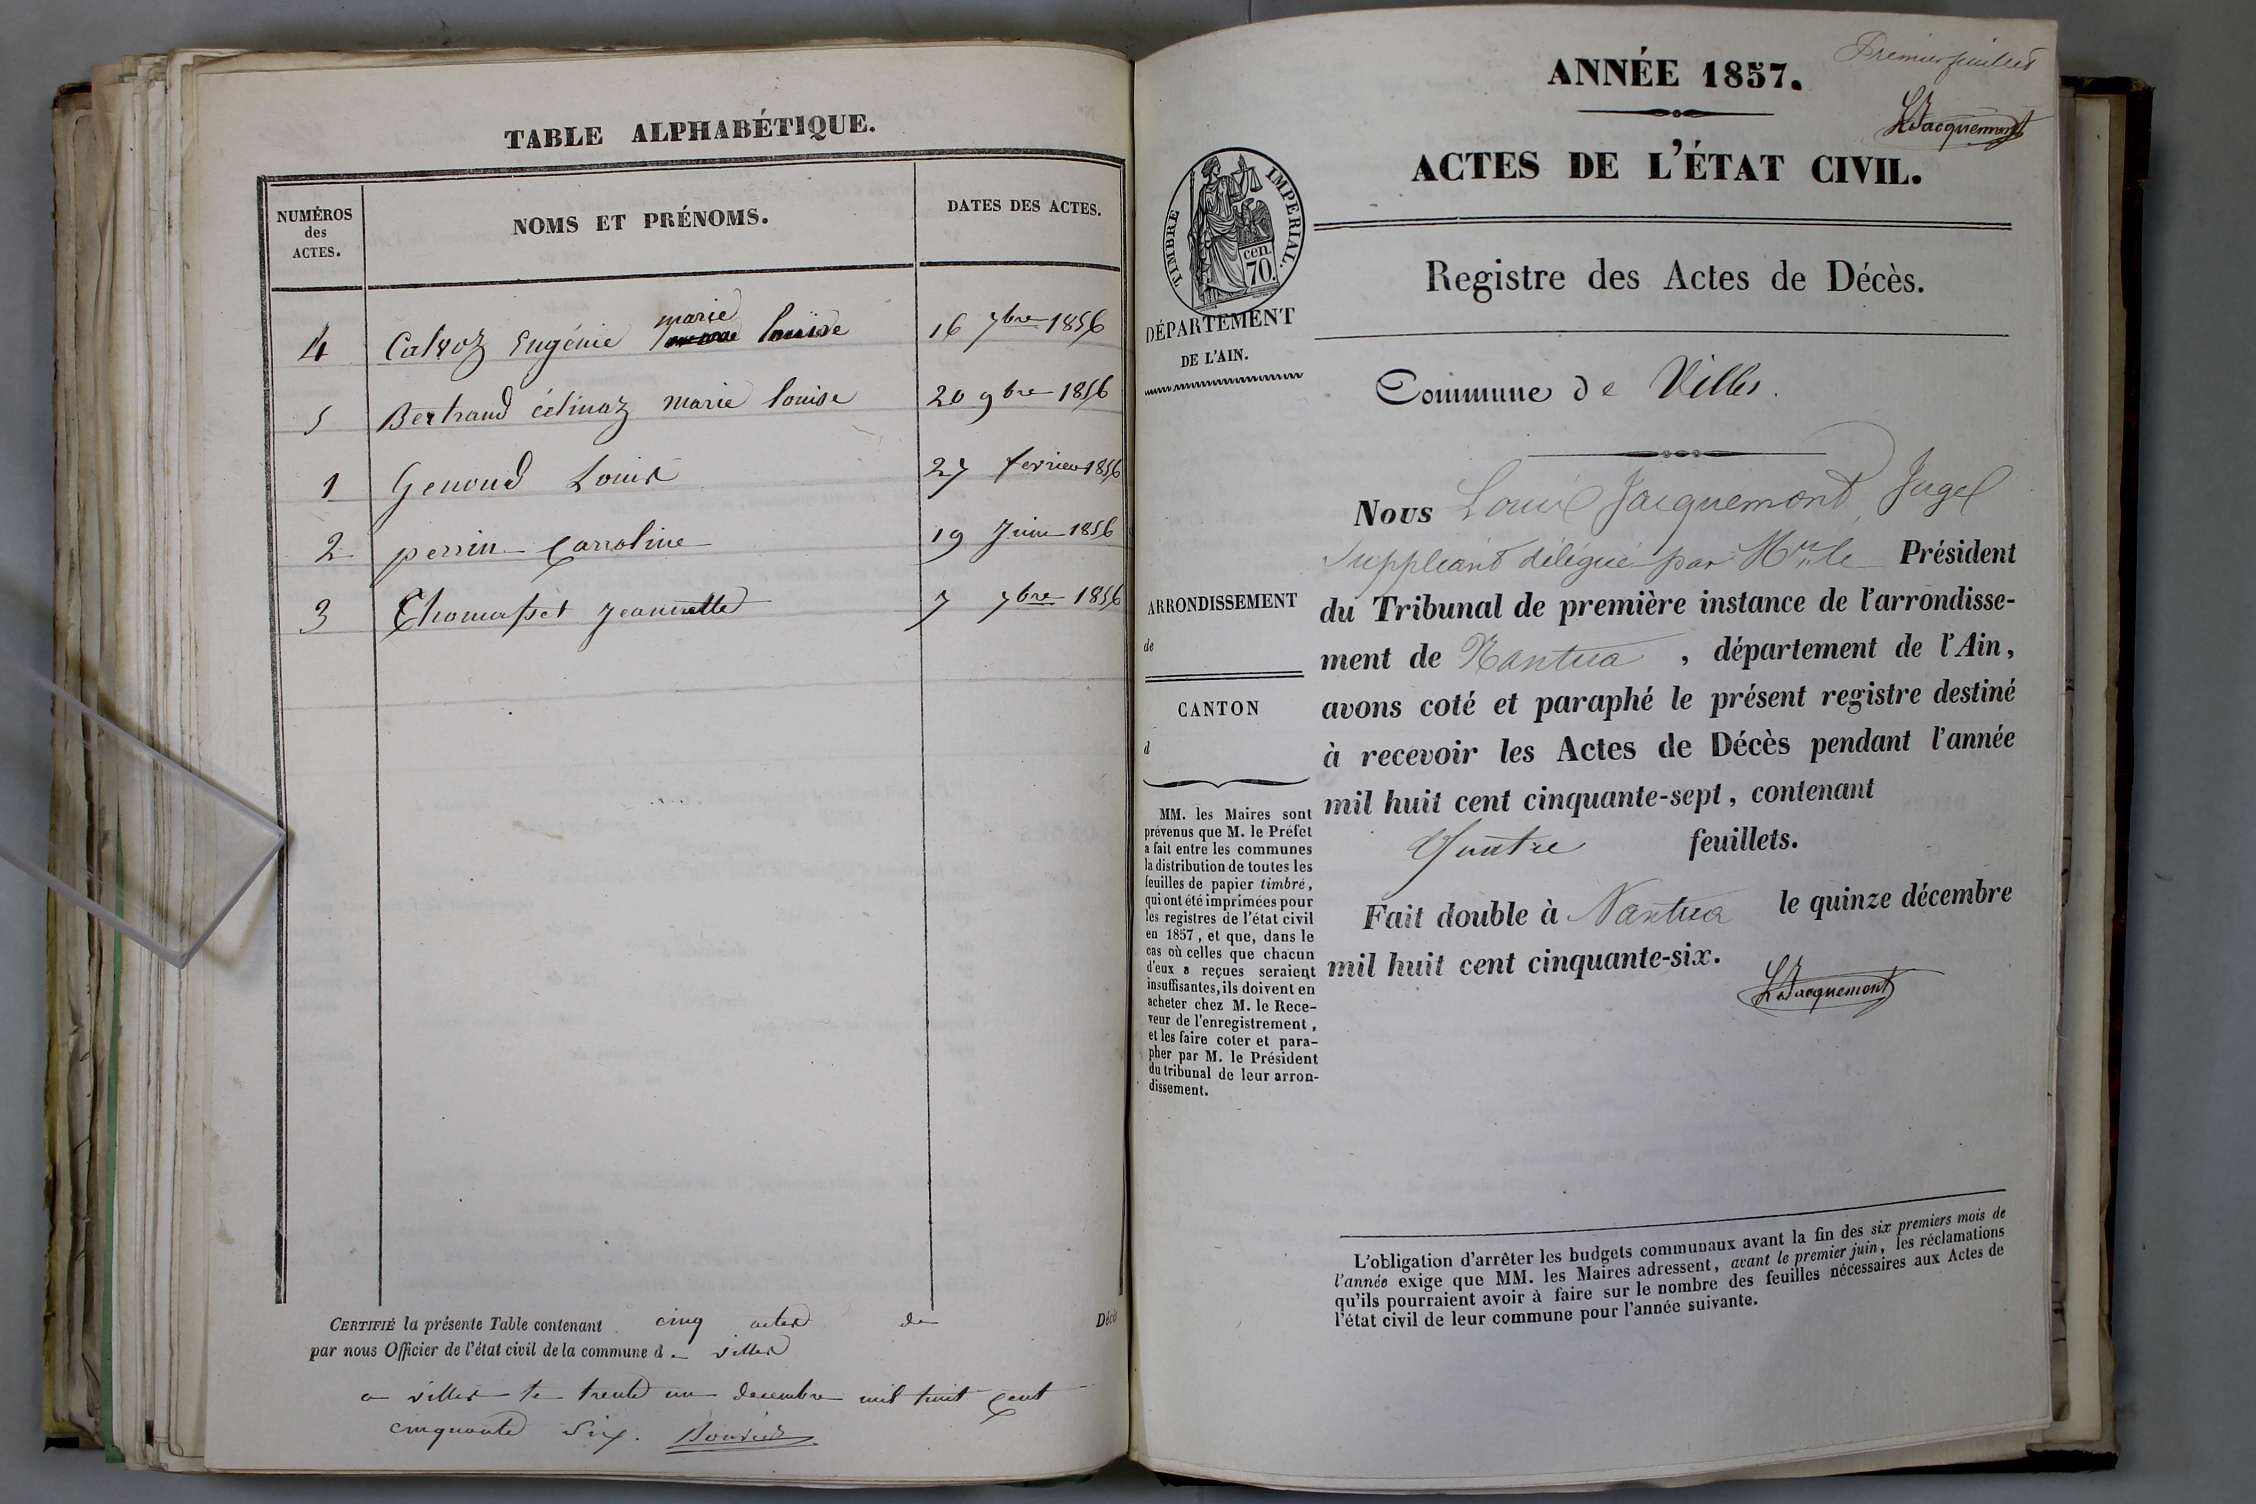 TABLE ALPHABÉTIQUE.
NUMÉROS
des
ACTES.
NOMS ET PRÉNOMS.
DATES DES ACTES.
4 Calvoz Eugénie marie louise 16 7bre 1856
5 Bertrand célinaz marie louise 20 9bre 1856
1 Genoud Louis 27 fevrier 1856
2 perrin Carroline 19 Juin 1856
3 Thomasset jeannette 7 7bre 1856
CERTIFIÉ la présente Table contenant cinq actes de Décès
par nous Officier de l'état civil de la commune de villes
a villes le trente un decembre mil huit cent
cinquante six.
Premier feuillet
LJacquemont
ANNÉE 1857.
ACTES DE L'ÉTAT CIVIL.
TIMBRE IMPERIAL.
cen.
70.
DÉPARTEMENT
DE L'AIN.
Registre des Actes de Décès.
Commune de Villes.
ARRONDISSEMENT
de
CANTON
d
MM. les Maires sont
prévenus que M. le Préfet
a fait entre les communes
la distribution de toutes les
feuilles de papier timbré,
qui ont été imprimées pour
les registres de l'état civil
en 1857, et que, dans le
cas où celles que chacun
d'eux a reçues seraient
insuffisantes, ils doivent en
acheter chez M. le Rece-
veur de l'enregistrement,
et les faire coter et para-
pher par M. le Président
du tribunal de leur arron-
dissement.
Nous Louis Jacquemont, Juge
Suppléant délégué par Mr le Président
du Tribunal de première instance de l'arrondisse-
ment de Nantua, département de l'Ain,
avons coté et paraphé le présent registre destiné
à recevoir les Actes de Décès pendant l'année
mil huit cent cinquante-sept, contenant
Quatre feuillets.
Fait double à Nantua le quinze décembre
mil huit cent cinquante-six.
LJacquemont
L'obligation d'arrêter les budgets communaux avant la fin des six premiers mois de
l'année exige que MM. les Maires adressent, avant le premier juin, les réclamations
qu'ils pourraient avoir à faire sur le nombre des feuilles nécessaires aux Actes de
l'état civil de leur commune pour l'année suivante.